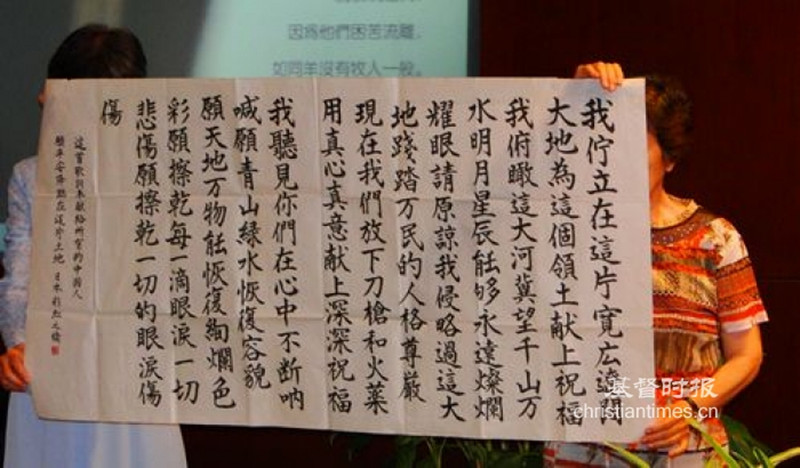 因爲他們困苦流離，
如同羊沒有牧人一般。
我佇立在這片寬広遼闊
大地為這個領土献上祝福
我俯瞰這大河冀望千山万
水明月星辰能够永遠燦爛
耀眼請原諒我侵略過這大
地踐踏万民的人格尊厳
現在我們放下刀槍和火薬
用真心真意献上深深祝福
我聽見你們在心中不断吶
喊願青山緑水恢復容貌
願天地万物能恢復絢爛色
彩願擦乾每一滴眼淚一切
悲傷願擦乾一切的眼淚傷
傷
這首歌詞奉献給所有的中国人
願平安降臨在這片土地 日本彩虹之橋
基督时报
christiantimes.cn